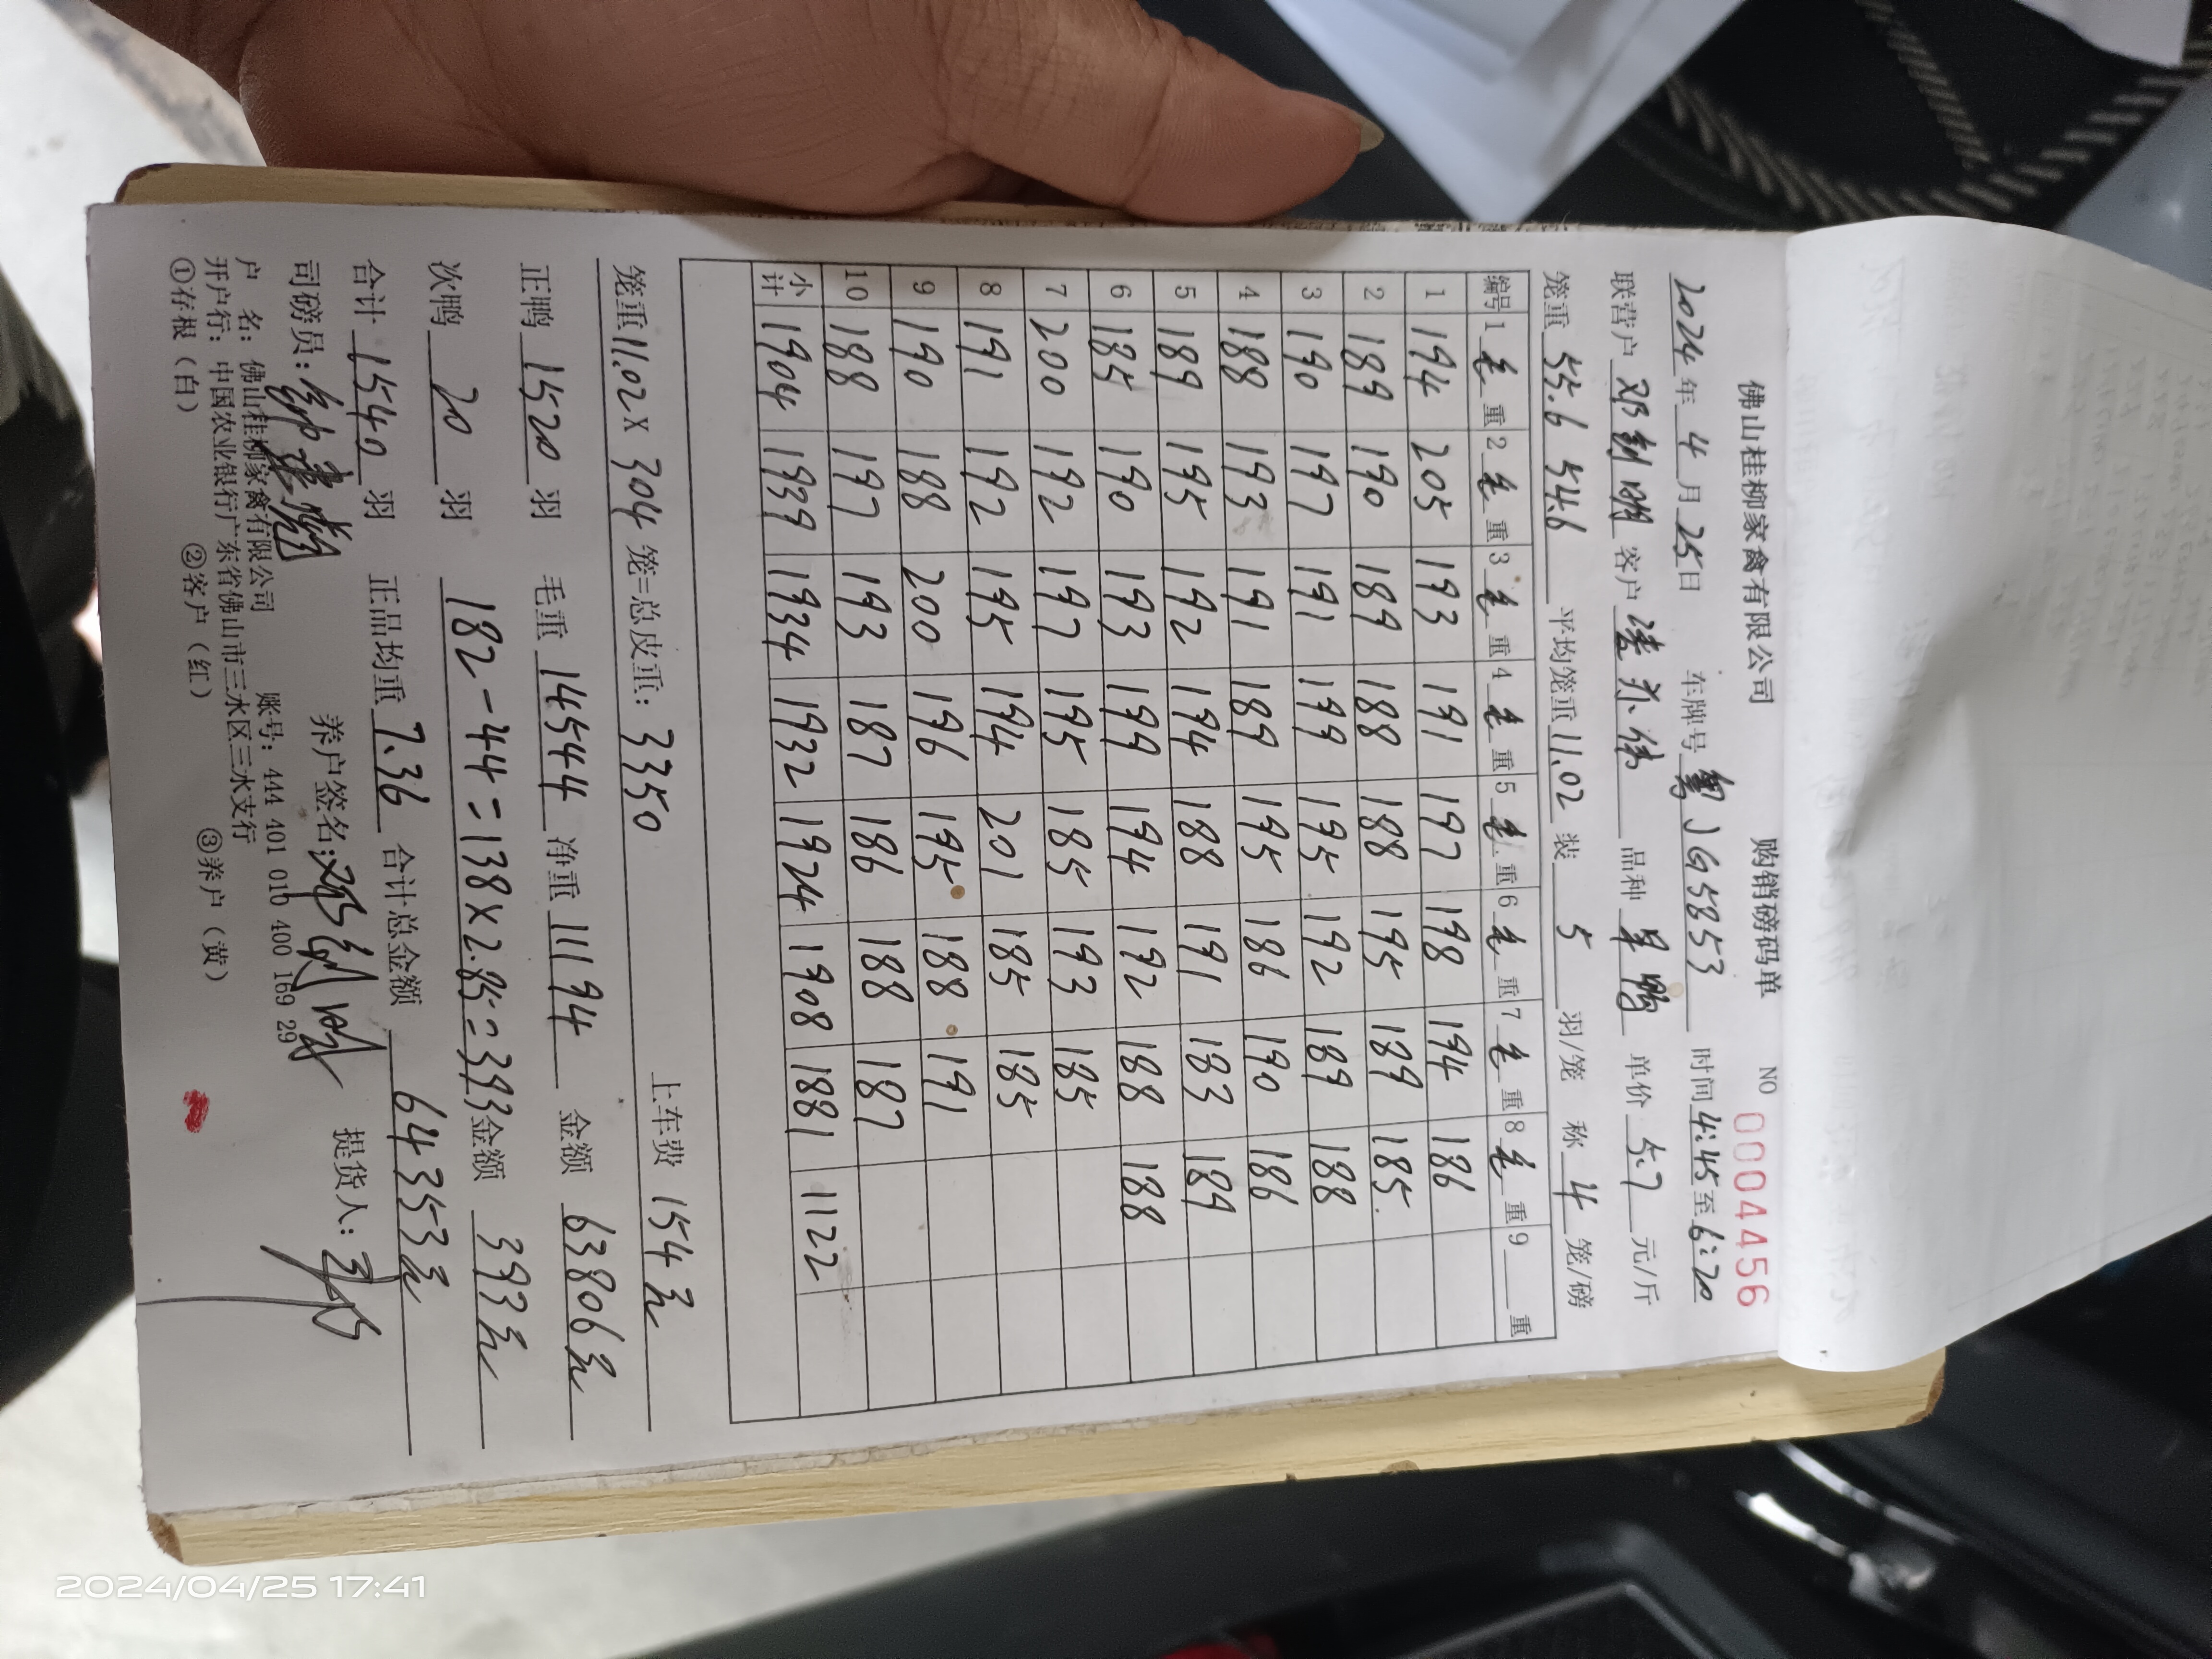 佛山桂柳家禽有限公司 购销磅码单 NO 0004456
2024年4月25日 车牌号 粤JG5853 时间4:45至6:20
联营户 邓钊明 客户 品种 旱鸭 单价 5.7 元/斤
笼重 55.6 54.6 平均笼重11.02 装 5 羽/笼 称 4 笼/磅
编号 1毛重 2毛重 3毛重 4毛重 5毛重 6毛重 7毛重 8毛重 9 重
1 194 205 193 191 197 198 194 186
2 189 190 189 188 188 195 189 185
3 190 197 191 199 195 192 189 188
4 188 193 191 189 195 186 190 186
5 189 195 192 194 188 191 183 189
6 185 190 193 199 194 192 188 188
7 200 192 197 195 185 193 185
8 191 192 195 194 201 185 185
9 190 188 200 196 195 188 191
10 188 197 193 187 186 188 187
小计 1904 1939 1934 1932 1924 1908 1881 1122
笼重11.02X 304 笼=总皮重: 3350 上车费 154元
正鸭 1520 羽 毛重 14544 净重 11194 金额 63806元
次鸭 20 羽 182-44=138X2.85=393金额 393元
合计 1540 羽 正品均重 7.36 合计总金额 64353元
司磅员: 养户签名: 邓钊明 提货人:
户 名: 佛山桂柳家禽有限公司 账号: 444 401 010 400 169 29
开户行: 中国农业银行广东省佛山市三水区三水支行
①存根（白） ②客户（红） ③养户（黄）
2024/04/25 17:41